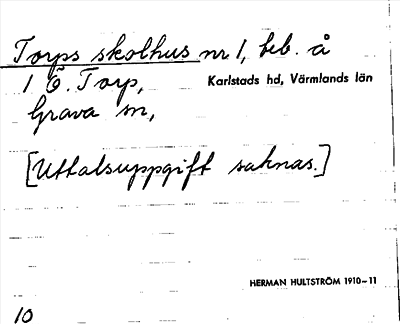 Torps skolhus nr 1, beb. å
1 Ö. Torp, Karlstads hd, Värmlands län
Grava sn,
[Uttalsuppgift saknas.]
HERMAN HULTSTRÖM 1910-11
10